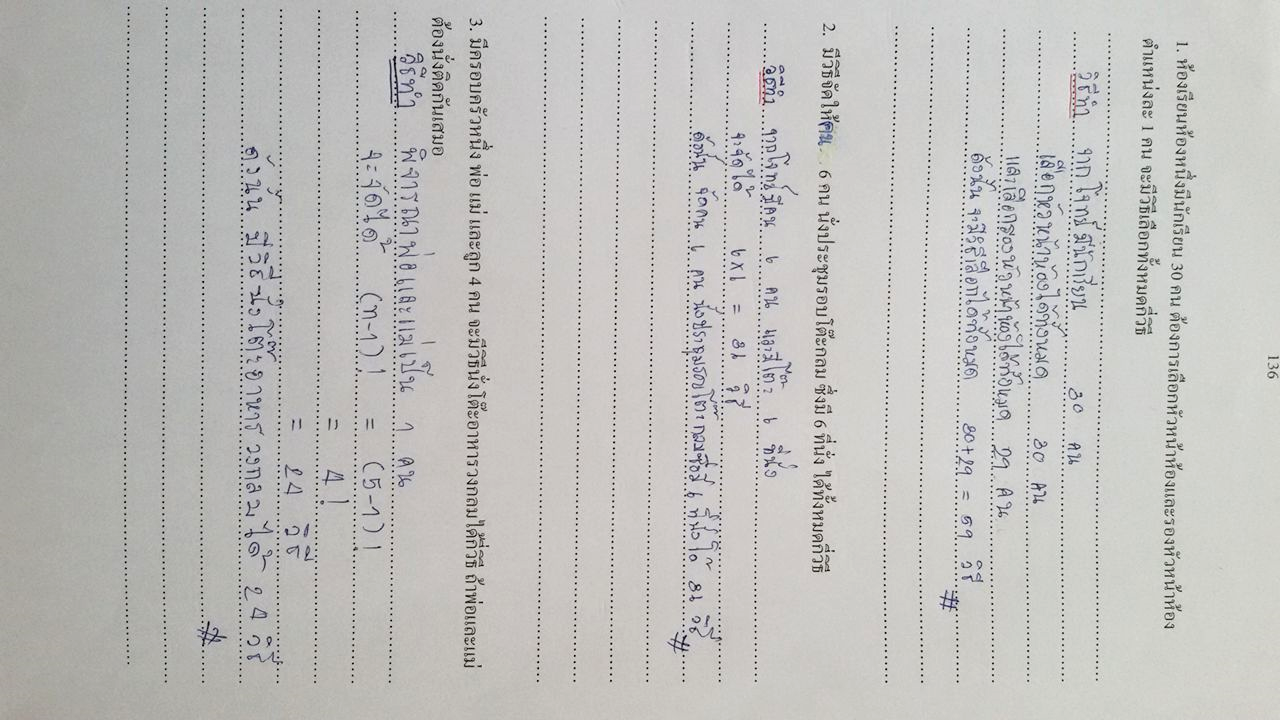 136
1. ห้องเรียนห้องหนึ่งมีนักเรียน 30 คน ต้องการเลือกหัวหน้าห้องและรองหัวหน้าห้อง
ตำแหน่งละ 1 คน จะมีวิธีเลือกทั้งหมดกี่วิธี
วิธีทำ จากโจทย์ มีนักเรียน 30 คน
เลือกหัวหน้าห้องได้ทั้งหมด 30 คน
และเลือกรองหัวหน้าห้องได้ทั้งหมด 29 คน
ดังนั้น จะมีวิธีเลือกได้ทั้งหมด 30+29 = 59 วิธี #
2. มีวิธีจัดให้คน 6 คน นั่งประชุมรอบโต๊ะกลม ซึ่งมี 6 ที่นั่ง ได้ทั้งหมดกี่วิธี
วิธีทำ จากโจทย์มีคน 6 คน และมีโต๊ะ 6 ที่นั่ง
จะจัดได้ 6x6 = 36 วิธี
ดังนั้น จัดคน 6 คน นั่งประชุมรอบโต๊ะกลมซึ่งมี 6 ที่นั่งได้ 36 วิธี #
3. มีครอบครัวหนึ่ง พ่อ แม่ และลูก 4 คน จะมีวิธีนั่งโต๊ะอาหารวงกลมได้กี่วิธี ถ้าพ่อและแม่
ต้องนั่งติดกันเสมอ
วิธีทำ พิจารณาพ่อและแม่เป็น 1 คน
จะจัดได้ (n-1)! = (5-1)!
= 4!
= 24 วิธี
ดังนั้น มีวิธีนั่งโต๊ะอาหารวงกลมได้ 24 วิธี
#